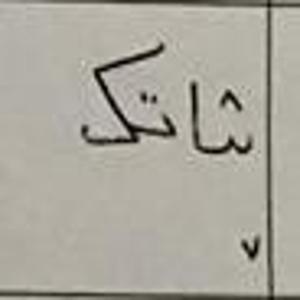 شاتک
۷